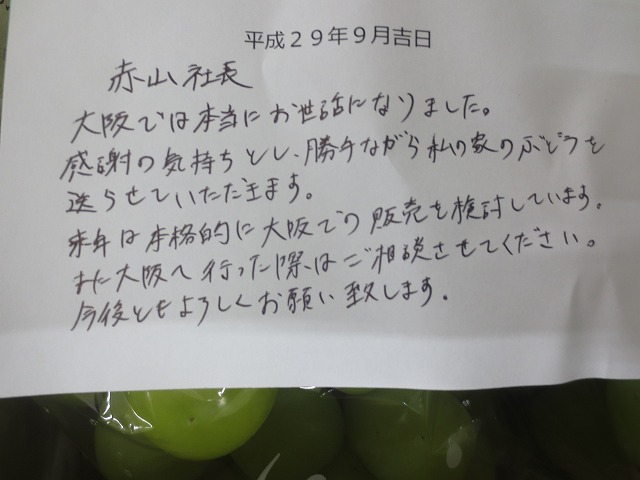 平成29年9月吉日
赤山社長
大阪では本当にお世話になりました。
感謝の気持ちとし、勝手ながら私の家のぶどうを
送らせていただきます。
来年は本格的に大阪での販売を検討しています。
また大阪へ行った際はご相談させてください。
今後ともよろしくお願い致します。